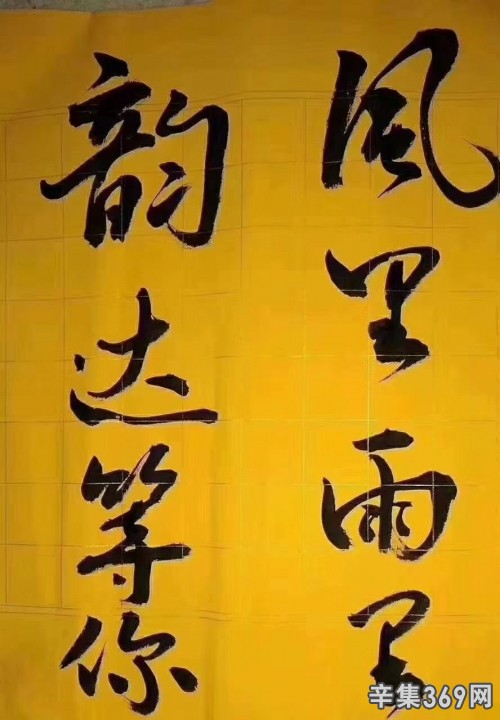 風里雨里
韵达等你
辛集369网